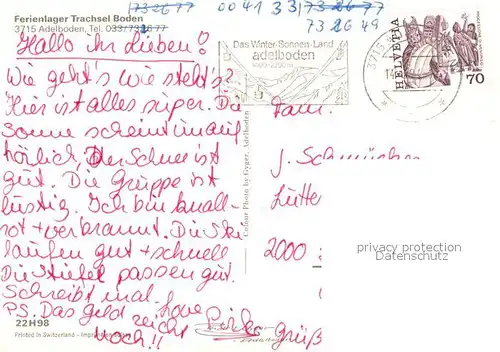 Ferienlager Trachsel Boden
3715 Adelboden, Tel. 033/73 26 77
0041 33 73 26 77
73 26 49
Hallo ihr Lieben!
Wie geht's wie steht's?
Hier ist alles super. Die
Sonne scheint unauf
hörlich, Der Schnee ist
gut. Die Gruppe ist
lustig. Ich bin knall-
rot + verbrannt. Die Ski
laufen gut + schnell
Die Stiefel passen gut.
Schreibt mal.
PS. Das Geld reicht
noch!!
Grüß
22H98
Printed in Switzerland
Colour Photo by Gyger, Adelboden
Das Winter-Sonnen-Land
adelboden
3715
14
HELVETIA
70
Fam.
J.
Lütte
2000
privacy protection
Datenschutz